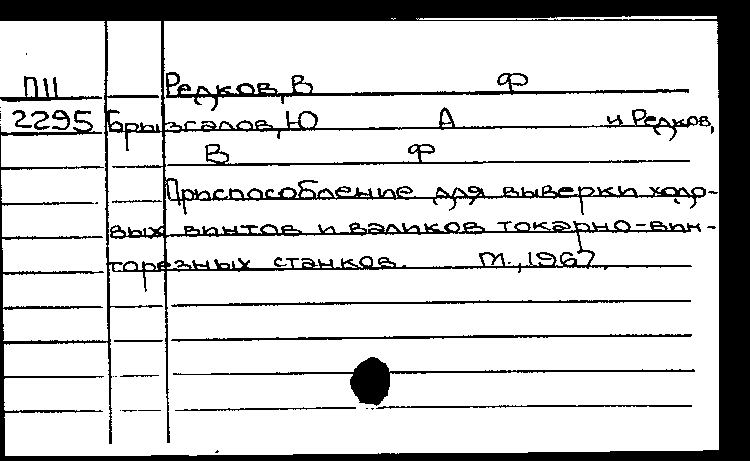 П11 Редков, В Ф
2295 Брызгалов, Ю А и Редков,
В Ф
Приспособление для выверки ходо-
вых винтов и валиков токарно-вин-
торезных станков. М., 1967.